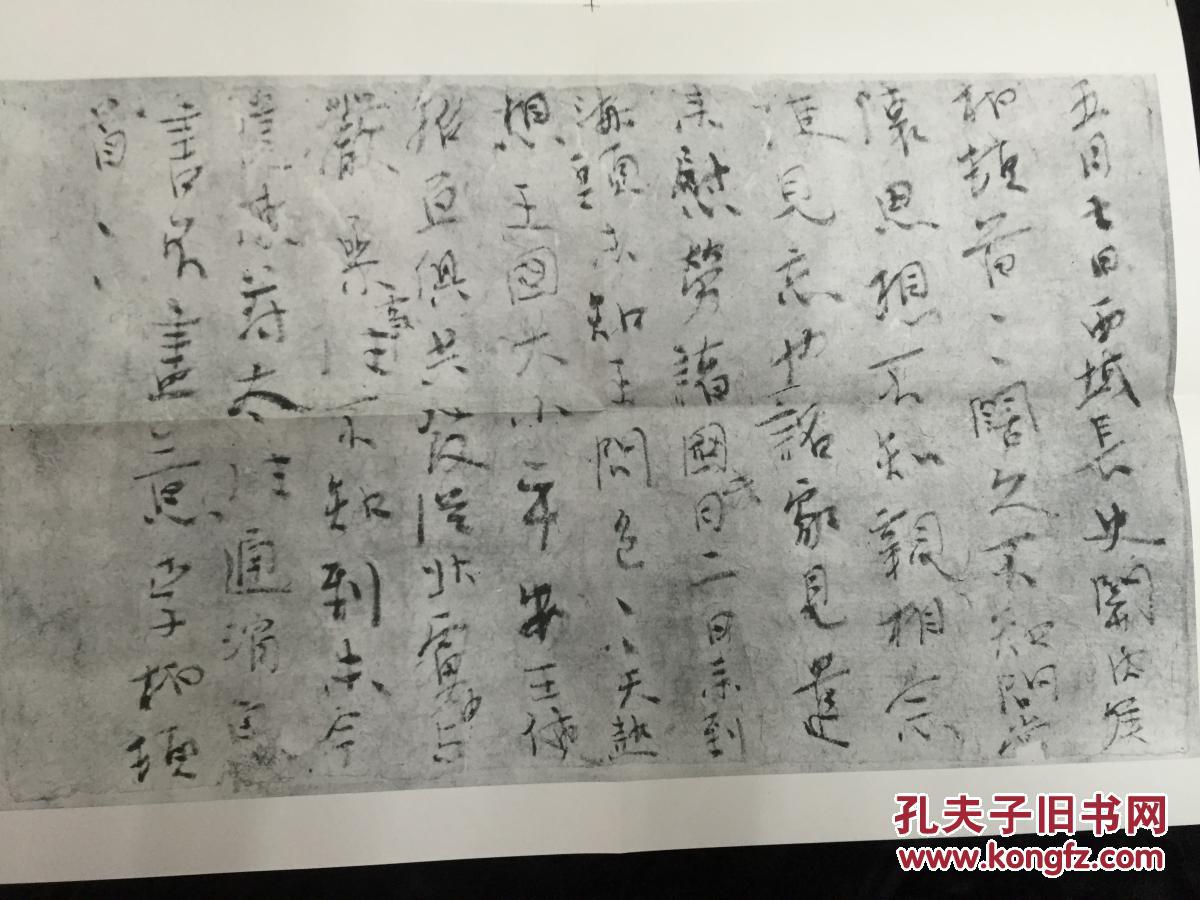 五月七日西域長史關内侯
柏頓首、、闊久不知問常
懷思想不知親相念
便見忘也詔家見遣
来慰勞諸國月二日来到
海頭未知王問邑、、天熱
想王國大小平安王使
招亘俱共發從北虜中与
嚴參事往不知到未今
遣使符大往通消息
書不盡意李柏頓
首、、
孔夫子旧书网
www.kongfz.com